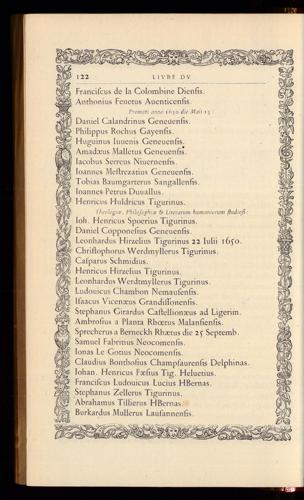 122 LIVRE DV
Franciſcus de la Colombine Dienſis.
Anthonius Feuetus Auenticenſis.
Promoti anno 1650 die Maii 15 :
Daniel Calandrinus Geneuenſis.
Philippus Rochus Gayenſis.
Huguinus Iuuenis Geneuenſis.
Amadæus Malletus Geneuenſis.
Iacobus Serreus Niuernenſis.
Ioannes Meſtrezatius Geneuenſis.
Tobias Baumgarterus Sangallenſis.
Ioannes Petrus Duuallus.
Henricus Huldricus Tigurinus.
Theologiæ, Philoſophiæ & Literarum humaniorum ſtudioſi :
Ioh. Henricus Spoerius Tigurinus.
Daniel Copponeſus Geneuenſis.
Leonhardus Hirzelius Tigurinus 22 Iulii 1650.
Chriſtophorus Werdmyllerus Tigurinus.
Caſparus Schmidius.
Henricus Hirzelius Tigurinus.
Leonhardus Werdtmyllerus Tigurinus.
Ludouicus Chambon Nemauſenſis.
Iſaacus Vicenæus Grandiſſonenſis.
Stephanus Girardus Caſtellionæus ad Ligerim.
Ambroſius a Planta Rhœtus Malanſienſis.
Sprecherus a Berneckh Rhœtus die 25 Septemb.
Samuel Fabritius Neocomenſis.
Ionas Le Goux Neocomenſis.
Claudius Bonthoſius Champſaurenſis Delphinas.
Iohan. Henricus Fæſius Tig. Heluetius.
Franciſcus Ludouicus Lucius HBernas.
Stephanus Zellerus Tigurinus.
Abrahamus Tillierus HBernas.
Burkardus Mullerus Lauſannenſis.